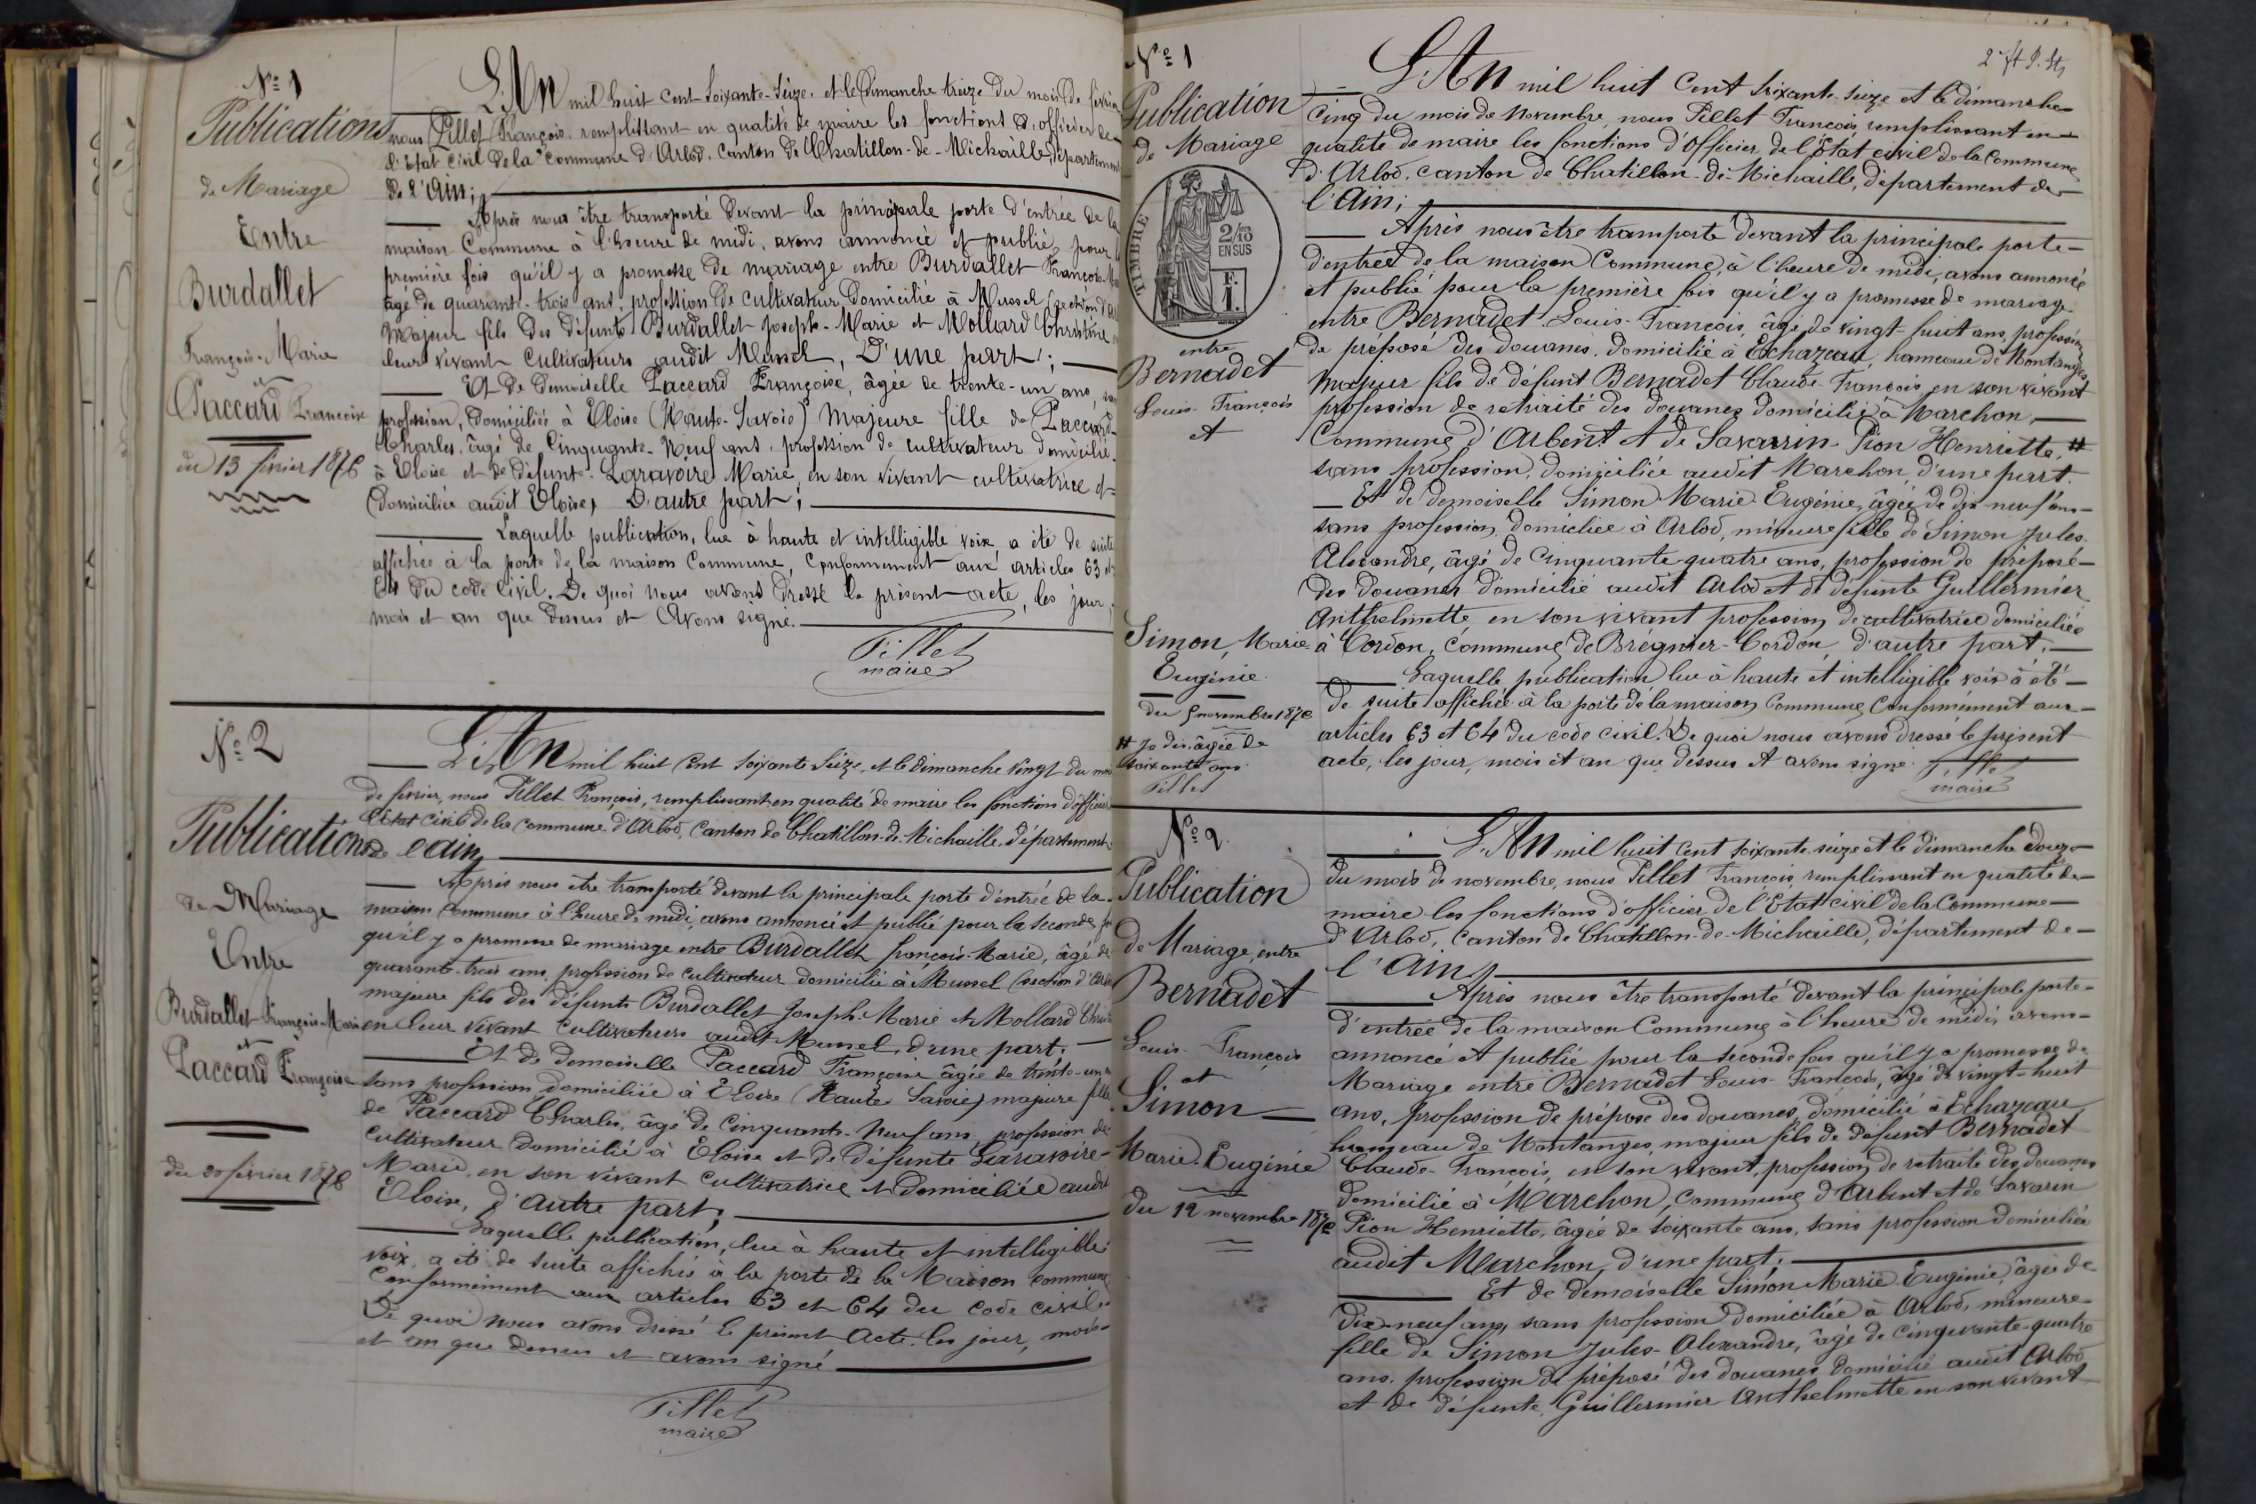 Nº 1
Publications
de Mariage
Entre
Burdallet
François-Marie
et
Paccard Françoise
du 13 février 1876
L'An mil huit cent soixante-seize, et le Dimanche treize du mois de février
nous Pillet François, remplissant en qualité de maire les fonctions d'officier de
l'Etat Civil de la Commune d'Arlod, Canton de Chatillon-de-Michaille, département
de l'Ain;
Après nous être transporté devant la principale porte d'entrée de la
maison Commune à l'heure de midi, avons annoncé et publié pour la
première fois qu'il y a promesse de mariage entre Burdallet François-M
âgé de quarante-trois ans, profession de cultivateur domicilié à Mussel (section d'Ar
Majeur fils des défunts Burdallet Joseph-Marie et Mollard Christine
leur vivant Cultivateurs audit Mussel, D'une part;
Et de demoiselle Paccard Françoise, âgée de trente-un ans, sans
profession, domiciliée à Eloise (Haute-Savoie) Majeure fille de Paccard
Charles, âgé de Cinquante-Neuf ans, profession de cultivateur domicilié
à Eloise et de défunte Laravoire Marie, en son vivant cultivatrice et
domiciliée audit Eloise, D'autre part;
Laquelle publication, lue à haute et intelligible voix, a été de suite
affichée à la porte de la maison Commune, Conformément aux articles 63 et
64 du code Civil. De quoi nous avons dressé le présent acte, les jour,
mois et an que dessus et Avons signé.
Pillet
maire
Nº 2
Publication
de Mariage
Entre
Burdallet François-Marie
et
Paccard Françoise
du 20 février 1876
L'An mil huit Cent soixante seize, et le dimanche vingt du mois
de février, nous Pillet François, remplissant en qualité de maire les fonctions d'officier
l'état civil de la commune d'Arlod, Canton de Chatillon-de-Michaille, département
de l'ain;
Après nous être transporté devant la principale porte d'entrée de la
maison Commune à l'heure de midi, avons annoncé et publié pour la seconde fois
qu'il y a promesse de mariage entre Burdallet françois-Marie, âgé de
quarante-trois ans, profession de cultivateur domicilié à Mussel (section d'Arlod
majeure fils des défunts Burdallet Joseph-Marie et Mollard Christine
en leur vivant Cultivateurs audit Mussel, d'une part;
Et de demoiselle Paccard Françoise âgée de trente-un ans
sans profession, domiciliée à Eloise (Haute Savoie) majeure fille
de Paccard Charles, âgé de Cinquante-Neuf ans, profession de
Cultivateur domicilié à Eloise et de défunte Laravoire
Marie en son vivant Cultivatrice et domiciliée audit
Eloise, d'autre part;
Laquelle publication, lue à haute et intelligible
voix, a été de suite affichée à la porte de la Maison commune
Conformément aux articles 63 et 64 du code civil.
De quoi nous avons dressé le présent Acte, les jour, mois
et an que dessus et avons signé
Pillet
maire
Nº 1
Publication
de Mariage
TIMBRE
2/10
EN SUS
entre
Bernadet
Louis-François
et
Simon, Marie-
Eugénie
du 5 novembre 1876
# Je dis âgée de
soixante ans
Pillet
L'An mil huit Cent soixante-seize et le dimanche
Cinq du mois de Novembre, nous Pillet François, remplissant en
qualité de maire les fonctions d'Officier de l'État civil de la Commune
d'Arlod, canton de Chatillon-de-Michaille, département de
l'Ain;
Après nous être transporté devant la principale porte
d'entrée de la maison Commune, à l'heure de midi, avons annoncé
et publié pour la première fois qu'il y a promesse de mariage
entre Bernadet Louis-François, âgé de vingt-huit ans, profession
de préposé des douanes, domicilié à Echazeau, hameau de Montanges
Majeur fils de défunt Bernadet Claude-François en son vivant
profession de retraité des douanes domicilié à Marchon,
Commune d'Arbent et de Savarin Pion Henriette, #
sans profession, domiciliée audit Marchon, d'une part.
Et de demoiselle Simon Marie-Eugénie, âgée de dix-neuf ans
sans profession domiciliée à Arlod, mineure fille de Simon Jules
Alexandre, âgé de cinquante quatre ans, profession de préposé
des douanes domicilié audit Arlod et de défunte Guillermier
Anthelmette en son vivant profession de cultivatrice domiciliée
à Cordon, Commune de Brégnier-Cordon, d'autre part.
Laquelle publication lue à haute et intelligible voix a été
de suite affichée à la porte de la maison Commune, Conformément aux
articles 63 et 64 du code civil. De quoi nous avons dressé le présent
acte, les jour, mois et an que dessus et avons signé.
Pillet
maire
Nº 2
Publication
de Mariage, entre
Bernadet
Louis-François
et
Simon
Marie-Eugénie
du 12 novembre 1876
L'An mil huit Cent soixante-seize et le dimanche douze
du mois de novembre, nous Pillet François remplissant en qualité de
maire les fonctions d'officier de l'État civil de la Commune
d'Arlod, Canton de Chatillon-de-Michaille, département de
l'Ain;
Après nous être transporté devant la principale porte
d'entrée de la maison Commune à l'heure de midi, avons
annoncé et publié pour la seconde fois qu'il y a promesse de
Mariage entre Bernadet Louis-François, âgé de vingt-huit
ans, profession de préposé des douanes, domicilié à Echazeau
hameau de Montanges, majeur fils de défunt Bernadet
Claude-François, en son vivant, profession de retraité des douanes
domicilié à Marchon, Commune d'Arbent et de Savarin
Pion Henriette, âgée de soixante ans, sans profession domiciliée
audit Marchon, d'une part;
Et de demoiselle Simon Marie Eugénie, âgée de
dix-neuf ans, sans profession domiciliée à Arlod, mineure
fille de Simon Jules-Alexandre, âgé de cinquante-quatre
ans, profession de préposé des douanes domicilié audit Arlod
et de défunte Guillermier Anthelmette en son vivant